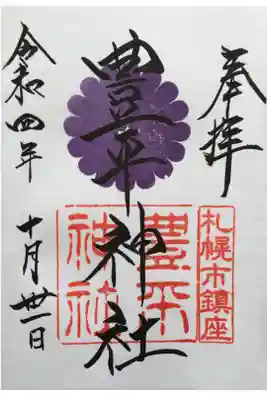 奉拝
札幌市鎮座
豊平神社
豊平神社
令和四年
十月卅一日